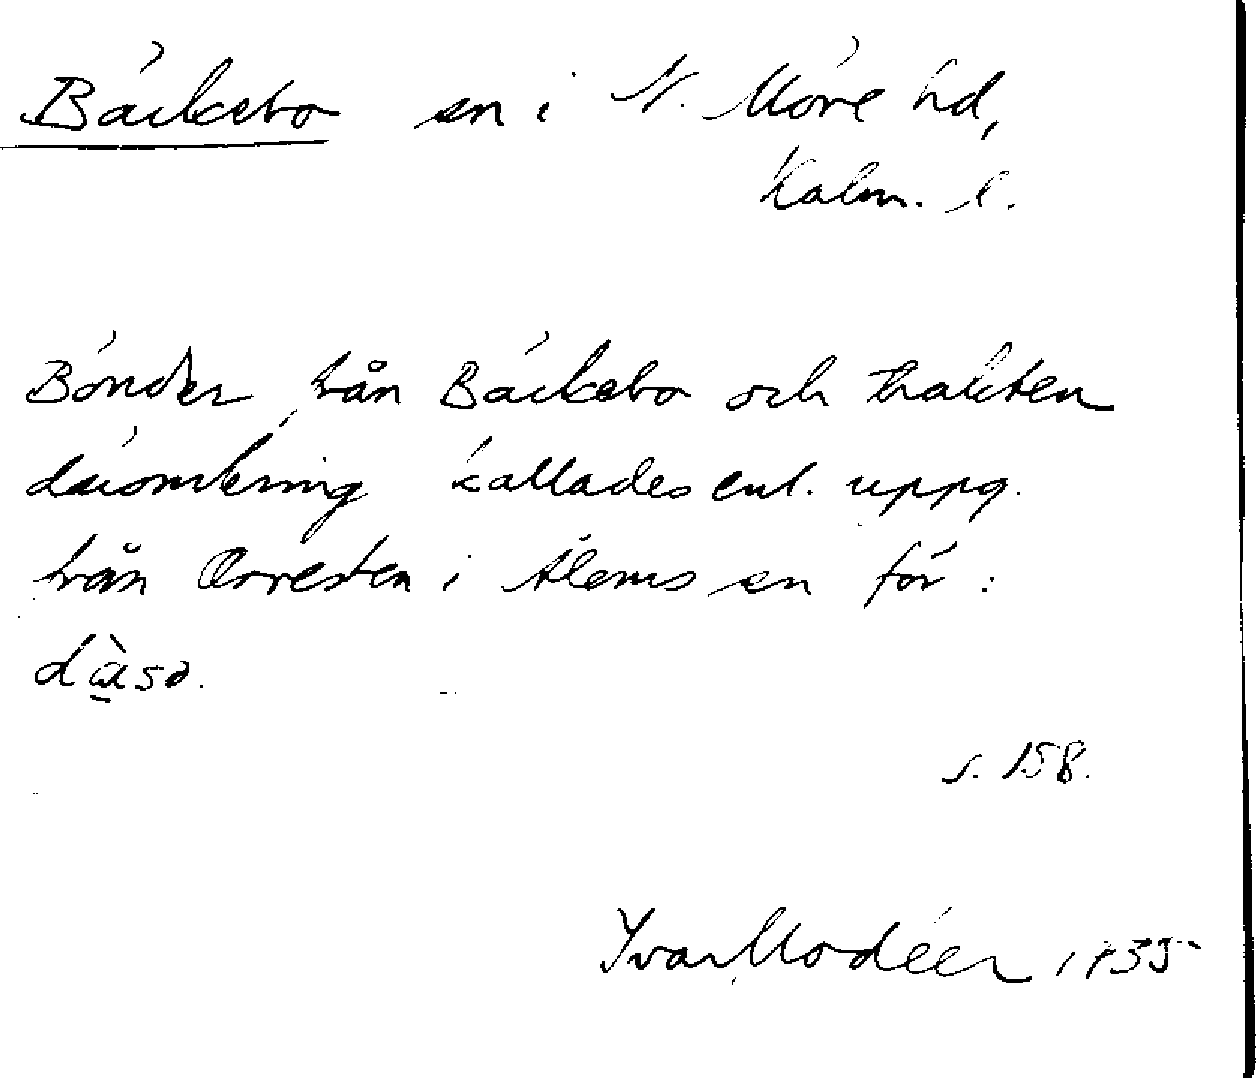 Bäckebo sn i N. Möre hd,
Kalm. l.
Bönder från Bäckebo och trakten
däromkring kallades enl. uppg.
från Orresten i Ålems sn för:
s. 158.
Yvar Modéer 1935